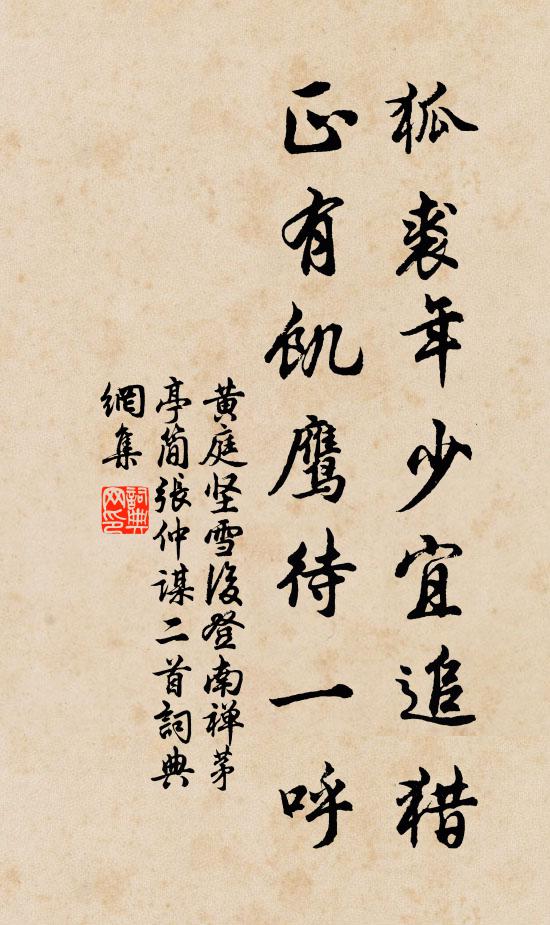 狐裘年少宜追猎
正有飢鹰待一呼
黄庭坚雪後登南禅茅
亭简張仲谋二首詞典
網集
詞典
网印